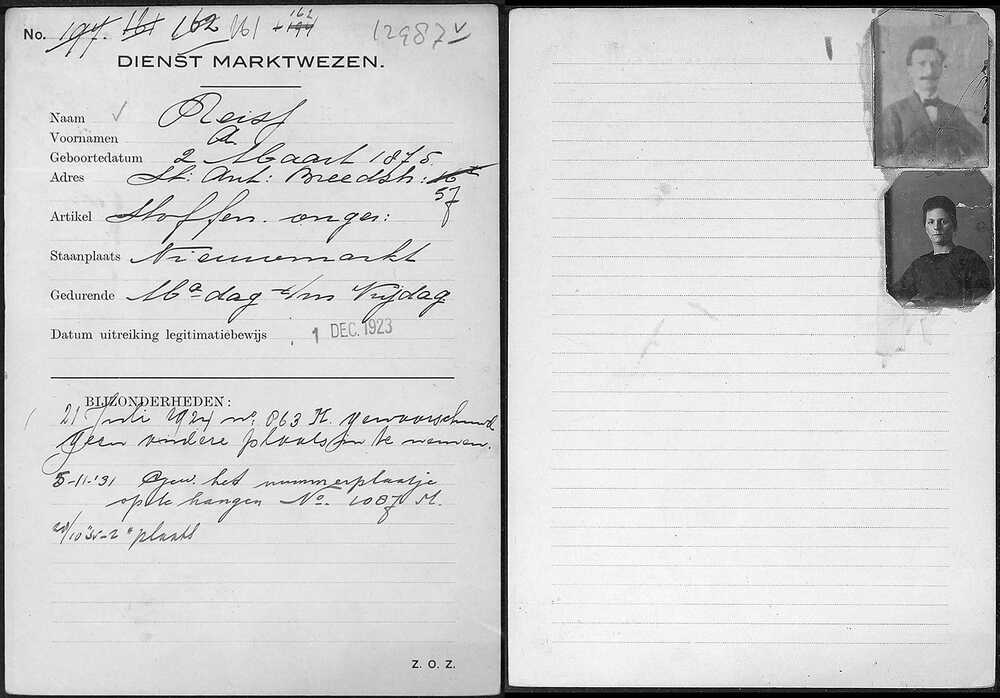 No. 197. 161 162 161 162 194 12987 v
DIENST MARKTWEZEN.
Naam Reiss
Voornamen A.
Geboortedatum 2 Maart 1875.
Adres St: Ant: Breedstr: 57
Artikel Stoffen. onger:
Staanplaats Nieuwmarkt
Gedurende Maandag t/m Vrijdag
Datum uitreiking legitimatiebewijs 1 DEC. 1923
BIJZONDERHEDEN:
21 Juli 1924 no 863 M. gewaarschuwd
geen andere plaats in te nemen.
5-11-'31 Gew. het nummerplaatje
op te hangen No. 1087 M.
plaats
Z. O. Z.